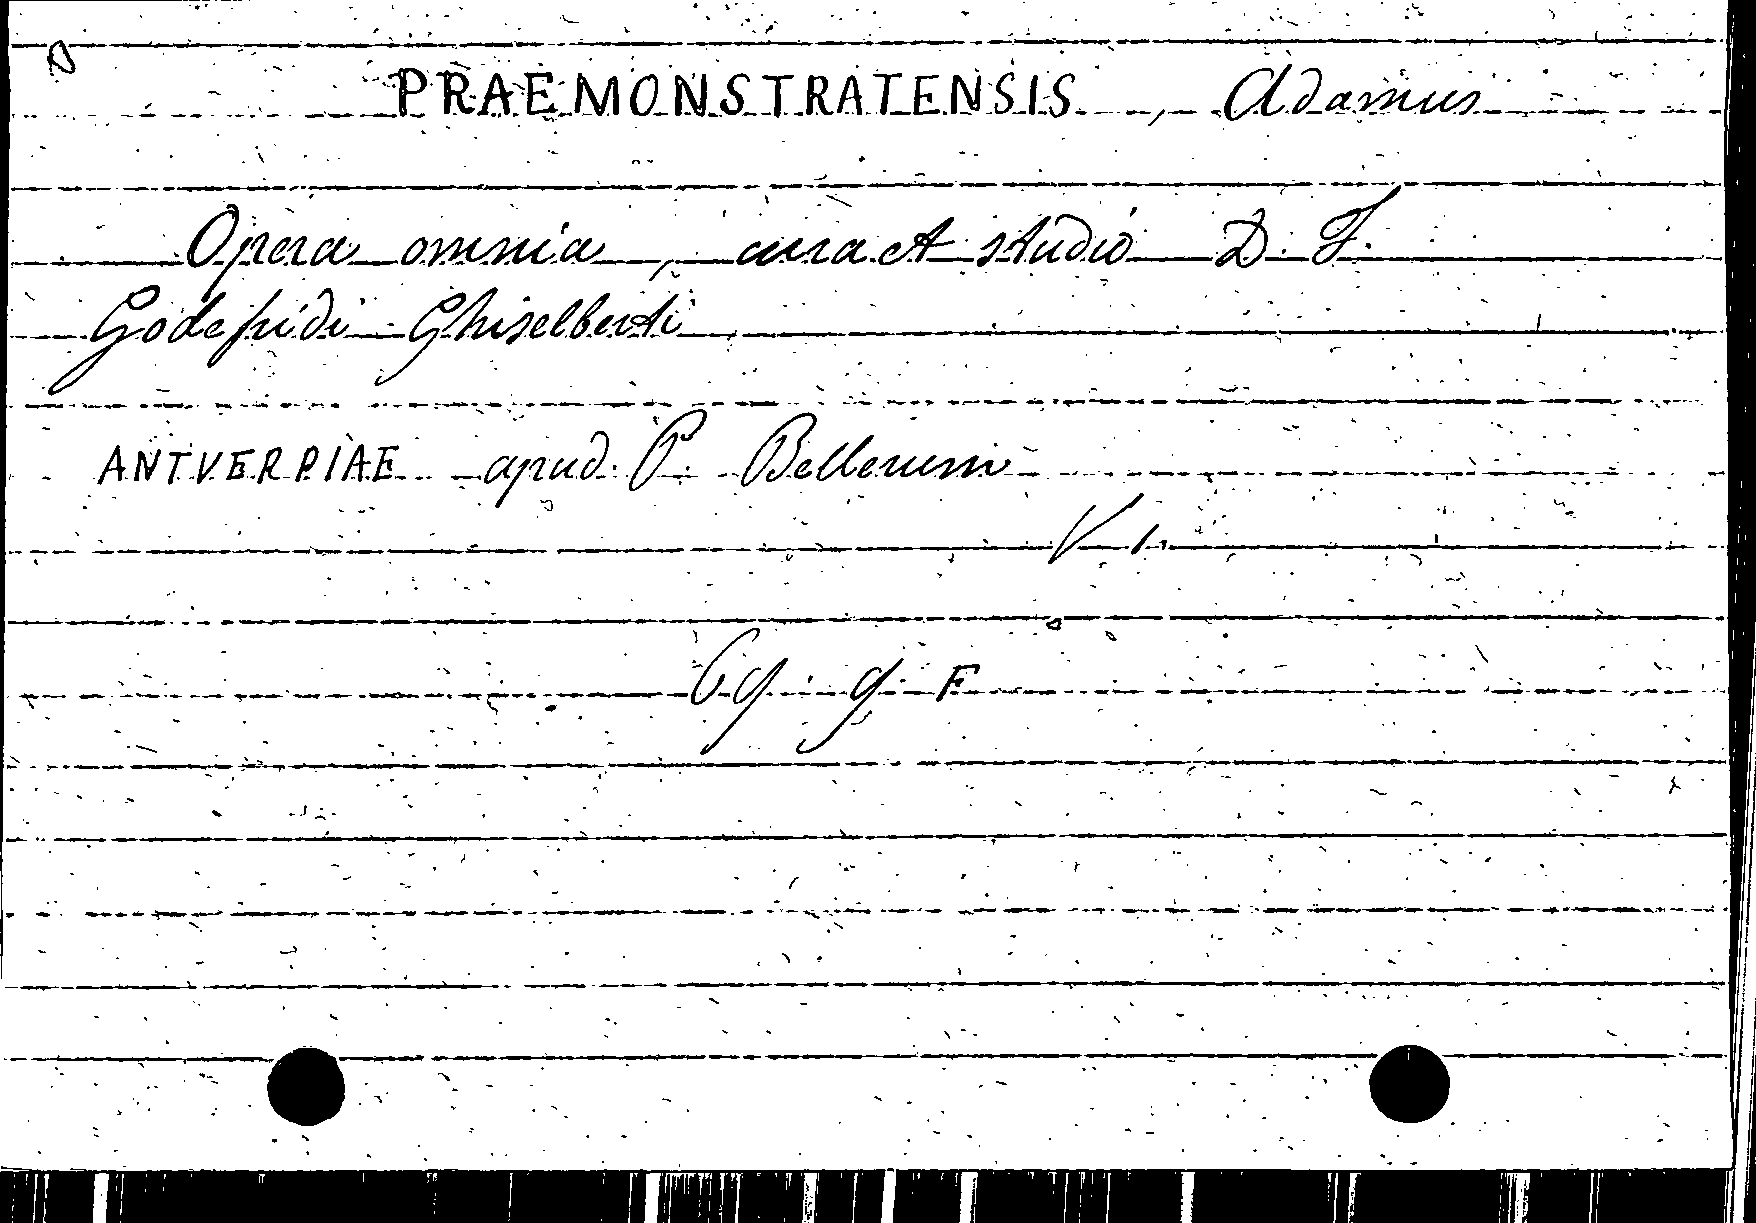 PRAEMONSTRATENSIS, Adamus
Opera omnia, cura et studio D. F.
Godefridi Ghiselberti
ANTVERPIAE apud P. Bellerum
V 1.